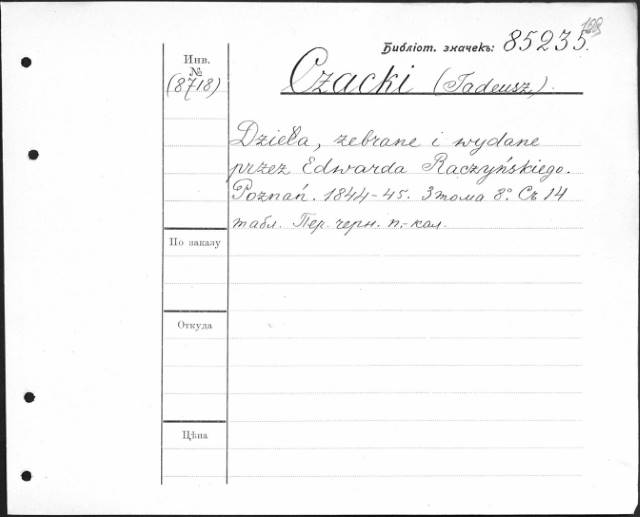 Библіот. значекъ: 85235.
Инв.
№
(8718)
Czacki (Tadeusz).
Dzieła, zebrane i wydane
przez Edwarda Raczyńskiego.
Poznań. 1844-45. 3 тома 8°. Съ 14
табл. Пер. черн. п.-кол.
По заказу
Откуда
Цѣна